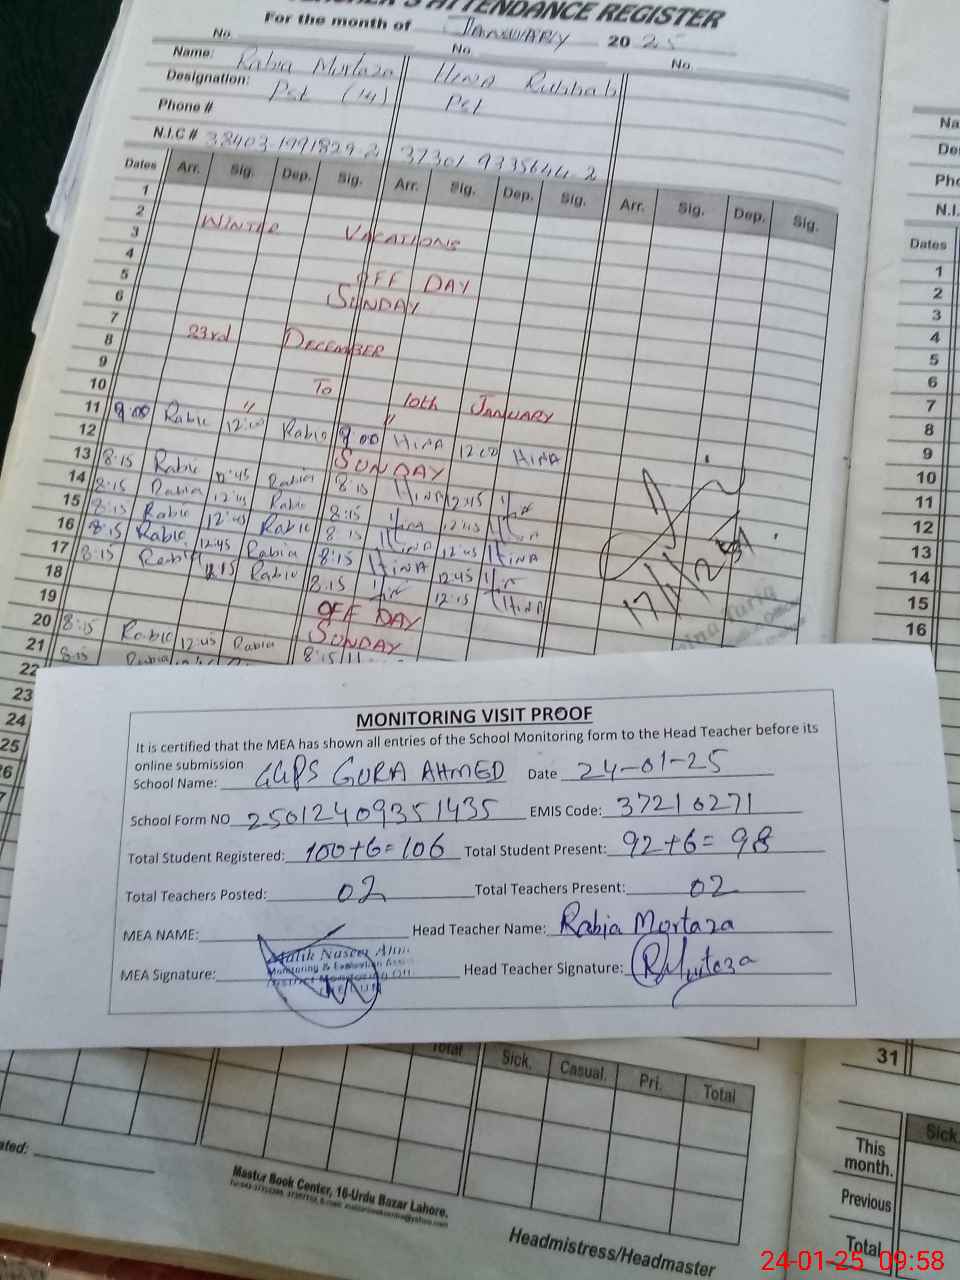 TEACHER'S ATTENDANCE REGISTER
For the month of JANUARY 2025
No. No. No.
Name: Rabia Murtaza Hina Rubbab
Designation: Pst (14) Pst
Phone #
N.I.C # 38403-1991829-2 37301-9335644-2
Dates Arr. Sig. Dep. Sig. Arr. Sig. Dep. Sig. Arr. Sig. Dep. Sig.
1
2
3 WINTER VACATIONS
4
5 OFF DAY
6 SUNDAY
7
8 23rd DECEMBER
9
10 To 10th JANUARY
11 " "
12 8:00 Rabia 12:00 Rabia 8:00 HINA 12:00 HINA
13 SUNDAY
14 8:15 Rabia 12:45 Rabia 8:15 HINA 12:45
15 8:15 Rabia 12:45 Rabia 8:15 12:45
16 8:15 Rabia 12:45 Rabia 8:15 HINA 12:45 HINA
17 8:15 Rabia 12:45 Rabia 8:15 HINA 12:45
18 8:15 Rabia 12:15 Rabia 8:15 12:15 HINA
19 OFF DAY
20 SUNDAY
21 8:15 Rabia 12:45 Rabia 8:15
22 8:15 Rabia
23
24
25
26
17/1/25
MONITORING VISIT PROOF
It is certified that the MEA has shown all entries of the School Monitoring form to the Head Teacher before its
online submission
School Name: GGPS GORA AHMED Date 24-01-25
School Form NO 25012409351435 EMIS Code: 37210271
Total Student Registered: 100+6=106 Total Student Present: 92+6=98
Total Teachers Posted: 02 Total Teachers Present: 02
MEA NAME: Head Teacher Name: Rabia Mortaza
Malik Naseer
Monitoring & Evaluation
MEA Signature: Head Teacher Signature: RMurtaza
Total Sick. Casual. Pri. Total
Mastur Book Center, 16-Urdu Bazar Lahore.
Headmistress/Headmaster
Dates
1
2
3
4
5
6
7
8
9
10
11
12
13
14
15
16
31
Sick.
This
month.
Previous
Total
24-01-25 09:58